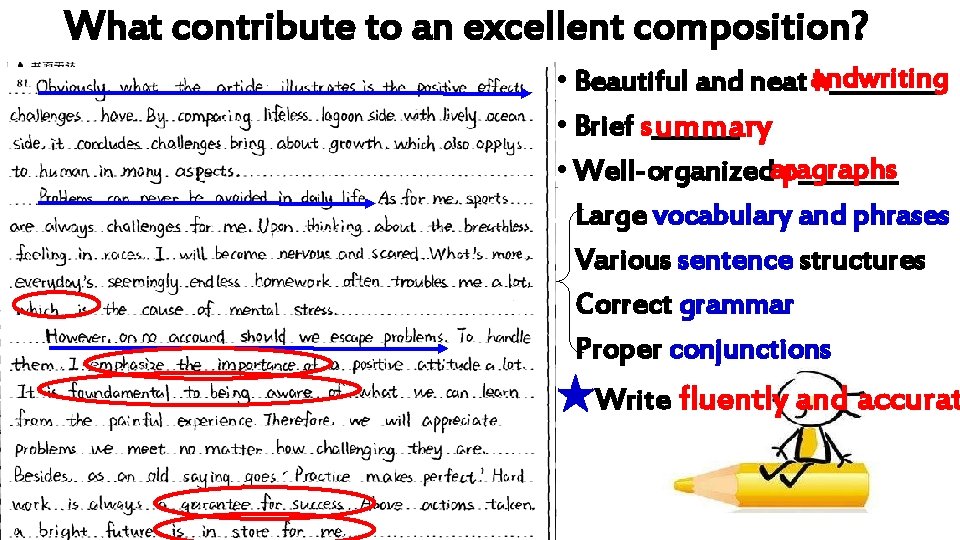 What contribute to an excellent composition?
81. Obviously what the article illustrates is the positive effects
challenges have. By comparing lifeless lagoon side with lively ocean
side, it concludes challenges bring about growth, which also applys
to human in many aspects.
Problems can never be avoided in daily life. As for me, sports
are always challenges for me. Upon thinking about the breathless
feeling in races, I will become nervous and scared. What's more,
everyday's seemingly endless homework often troubles me a lot,
which is the cause of mental stress.
However, on no accound should we escape problems. To handle
them, I emphasize the importance of a positive attitude a lot.
It is foundamental to being aware of what we can learn
from the painful experience. Therefore, we will appreciate
problems we meet no matter how challenging they are.
Besides, as an old saying goes: "Practice makes perfect." Hard
work is always a garantee for success. Above actions taken,
a bright future is in store for me.
• Beautiful and neat handwriting
• Brief summary
• Well-organized paragraphs
Large vocabulary and phrases
Various sentence structures
Correct grammar
Proper conjunctions
Write fluently and accurat